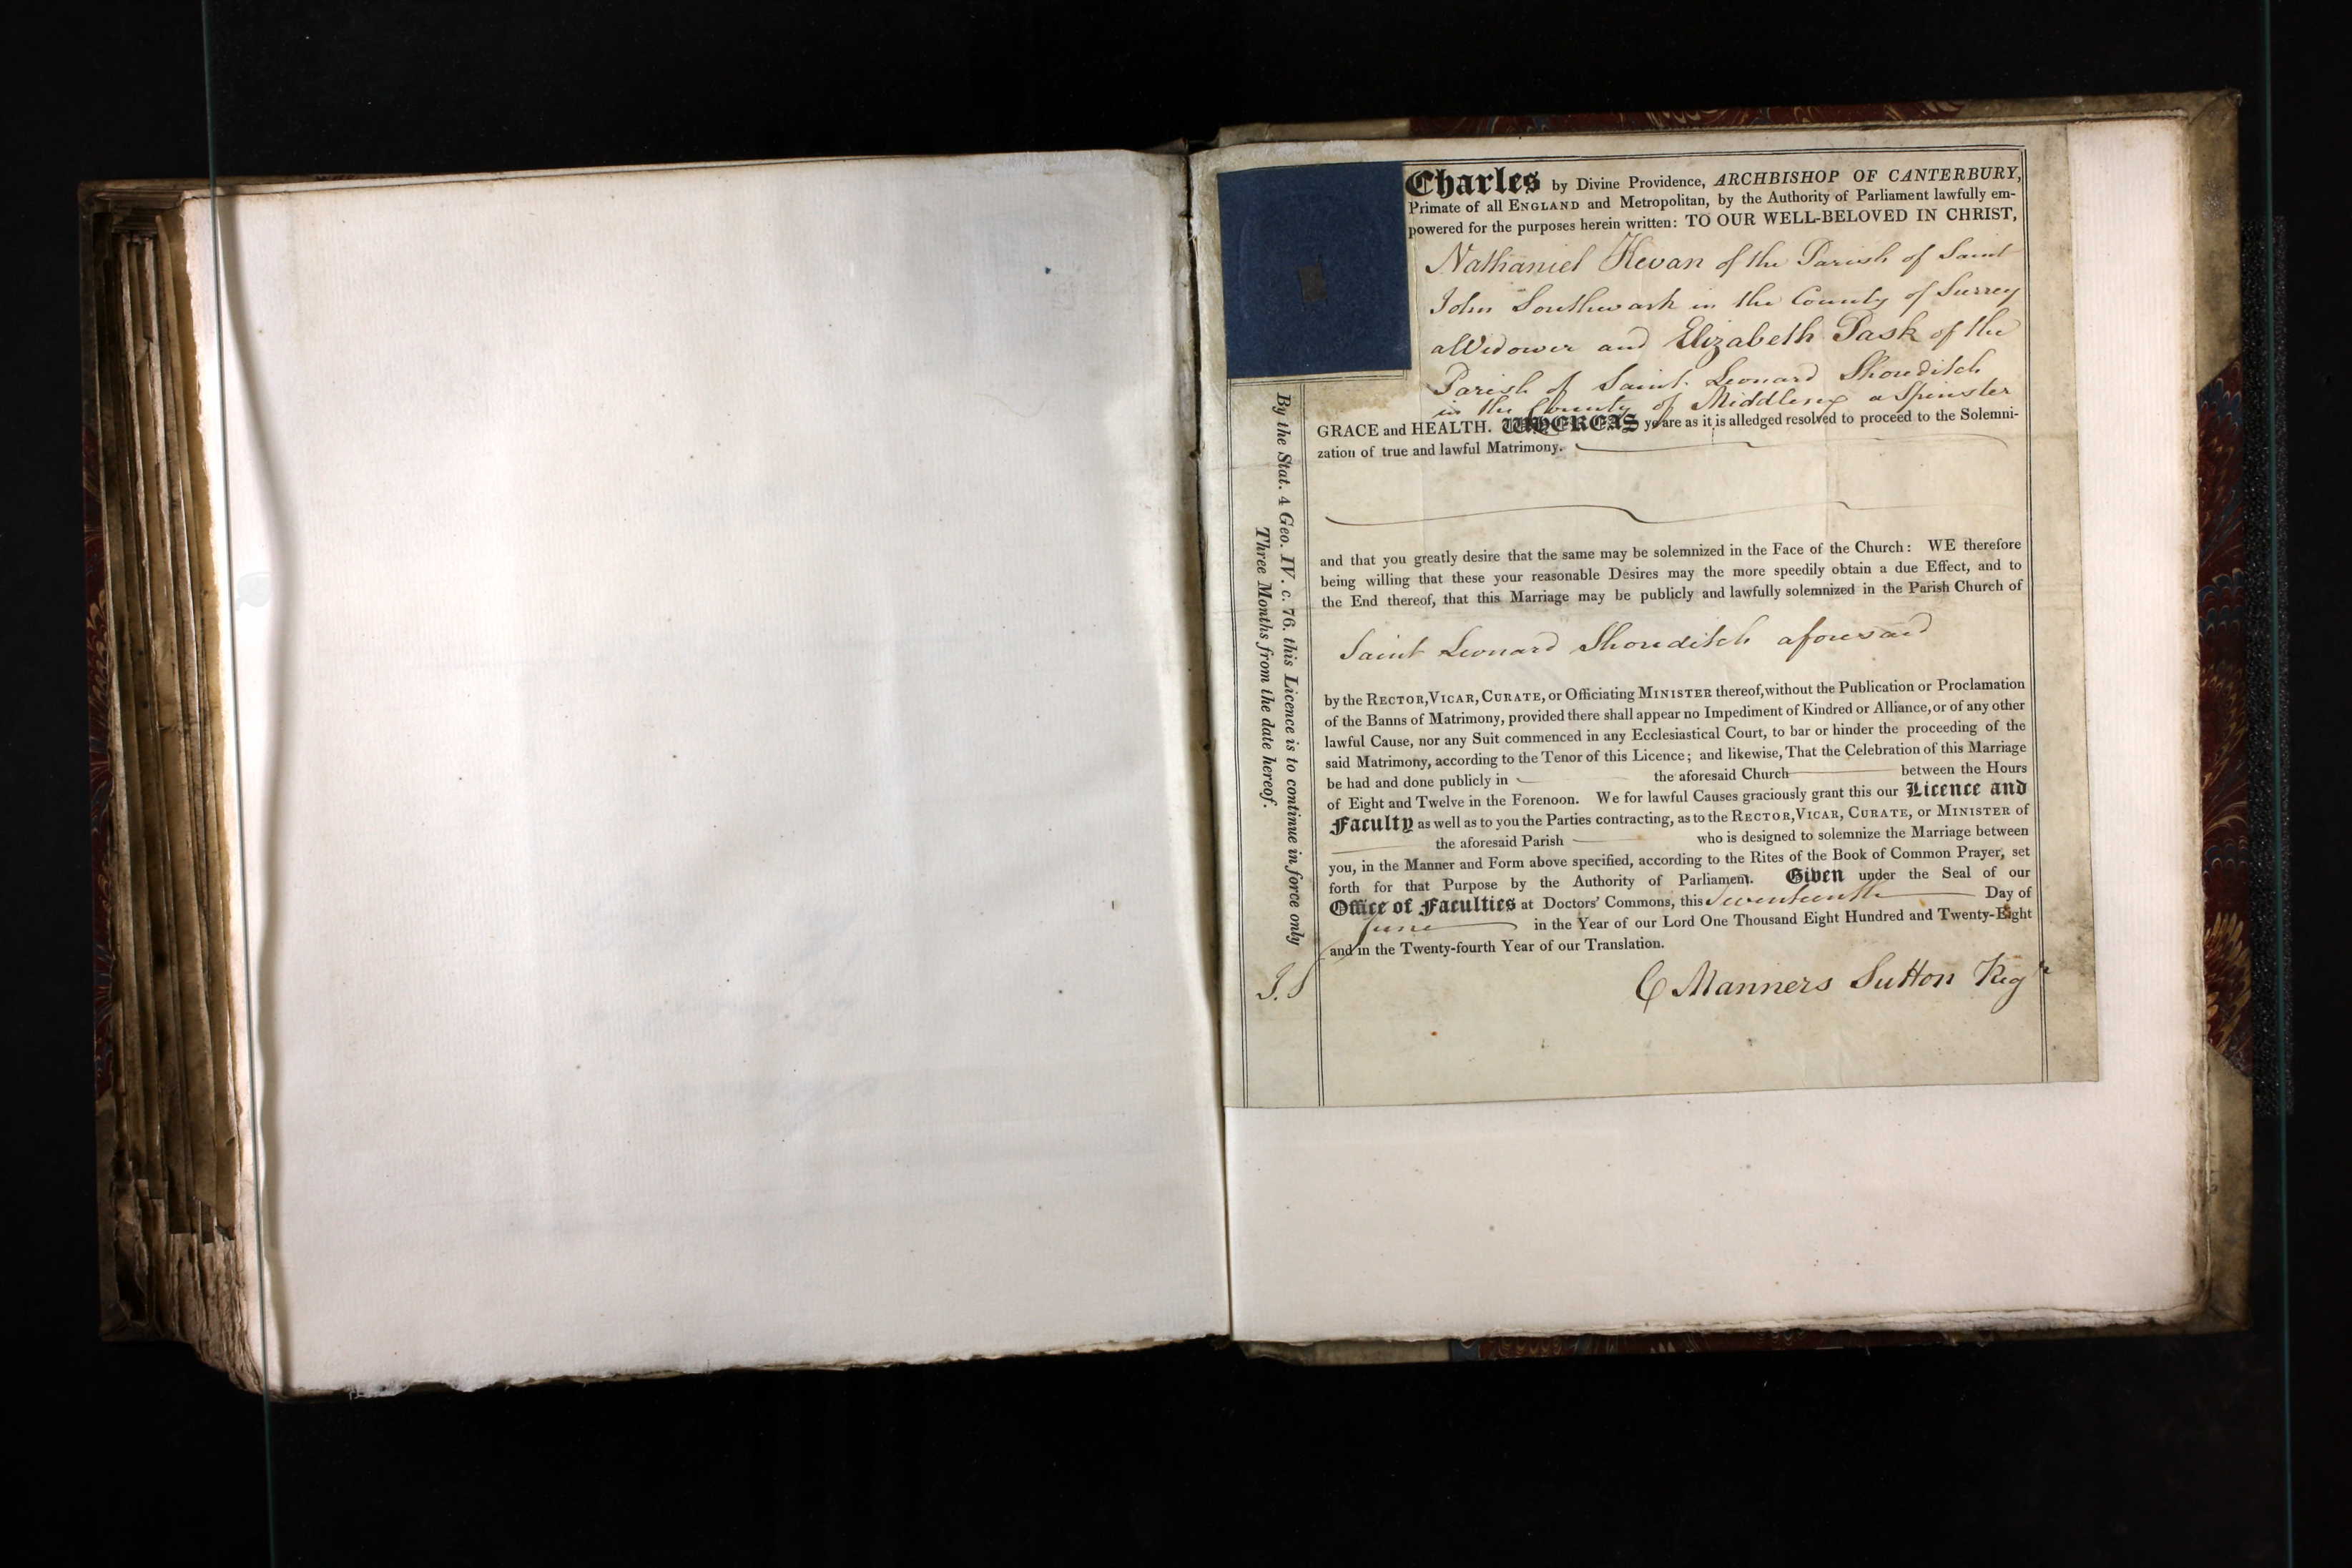 Charles by Divine Providence, ARCHBISHOP OF CANTERBURY,
Primate of all ENGLAND and Metropolitan, by the Authority of Parliament lawfully em-
powered for the purposes herein written: TO OUR WELL-BELOVED IN CHRIST,
Nathaniel Kevan of the Parish of Saint
John Southwark in the County of Surrey
a Widower and Elizabeth Pask of the
Parish of Saint Leonard Shoreditch
in the County of Middlesex a Spinster
GRACE and HEALTH. WHEREAS ye are as it is alledged resolved to proceed to the Solemni-
zation of true and lawful Matrimony.
and that you greatly desire that the same may be solemnized in the Face of the Church: WE therefore
being willing that these your reasonable Desires may the more speedily obtain a due Effect, and to
the End thereof, that this Marriage may be publicly and lawfully solemnized in the Parish Church of
Saint Leonard Shoreditch aforesaid
by the RECTOR, VICAR, CURATE, or Officiating MINISTER thereof, without the Publication or Proclamation
of the Banns of Matrimony, provided there shall appear no Impediment of Kindred or Alliance, or of any other
lawful Cause, nor any Suit commenced in any Ecclesiastical Court, to bar or hinder the proceeding of the
said Matrimony, according to the Tenor of this Licence; and likewise, That the Celebration of this Marriage
be had and done publicly in the aforesaid Church between the Hours
of Eight and Twelve in the Forenoon. We for lawful Causes graciously grant this our Licence and
Faculty as well as to you the Parties contracting, as to the RECTOR, VICAR, CURATE, or MINISTER of
the aforesaid Parish who is designed to solemnize the Marriage between
you, in the Manner and Form above specified, according to the Rites of the Book of Common Prayer, set
forth for that Purpose by the Authority of Parliament. Given under the Seal of our
Office of Faculties at Doctors' Commons, this Seventeenth Day of
June in the Year of our Lord One Thousand Eight Hundred and Twenty-Eight
and in the Twenty-fourth Year of our Translation.
C Manners Sutton Regr
By the Stat. 4 Geo. IV. c. 76. this Licence is to continue in force only
Three Months from the date hereof.
J.S